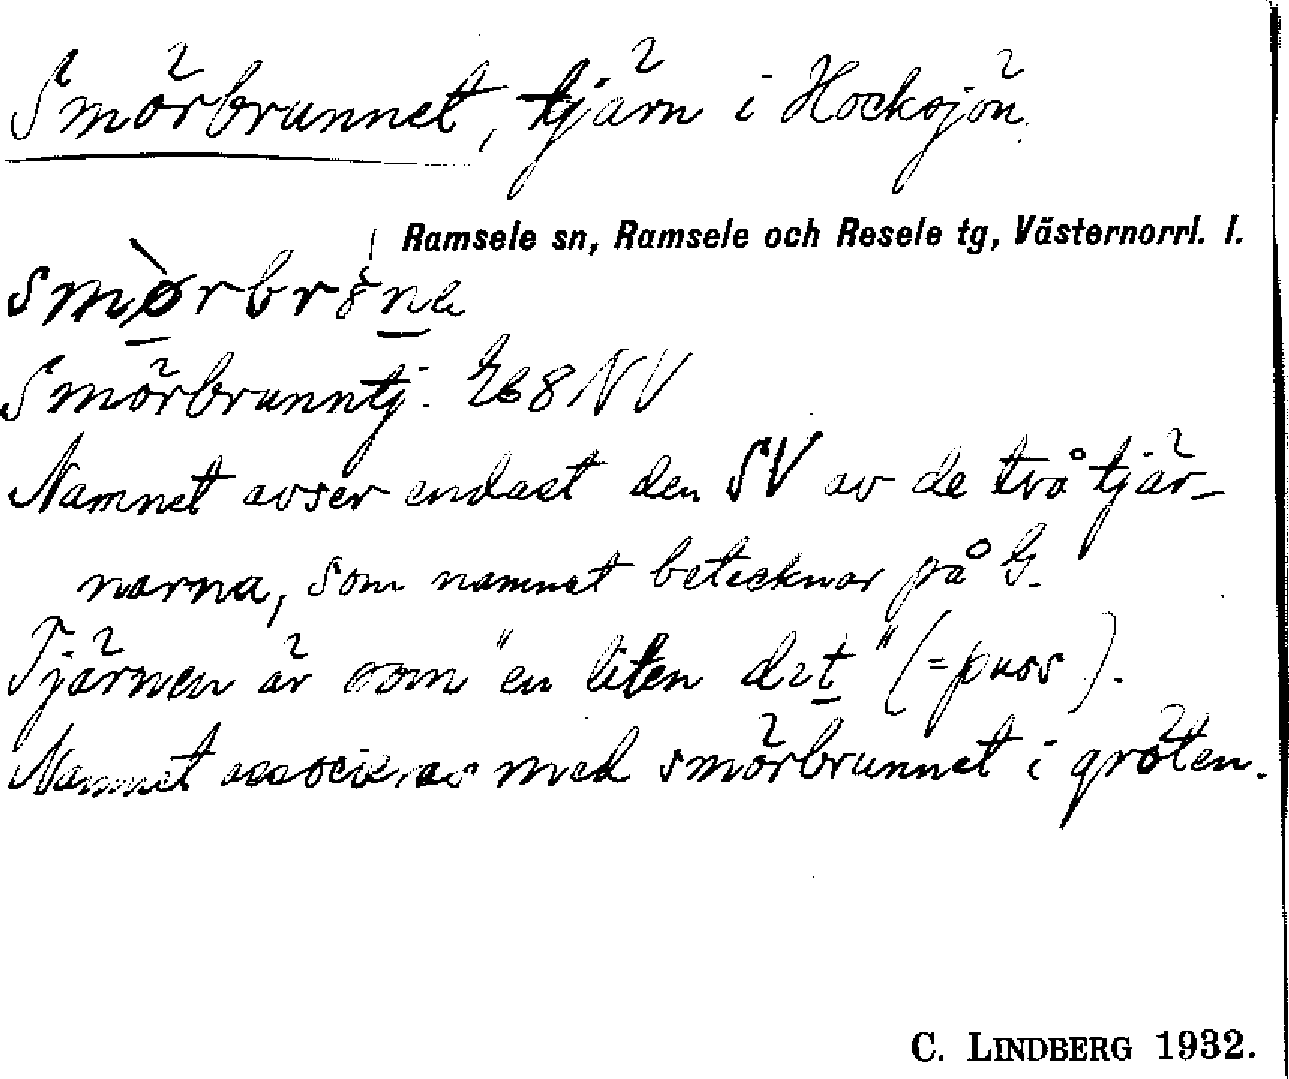 Smörbrunnet, tjärn i Hocksjön.
Ramsele sn, Ramsele och Resele tg, Västernorrl. l.
Smörbrunntj. 8 NV
Namnet avser endast den SV av de två tjär-
narna, som namnet betecknar på G.
Tjärnen är som "en liten det" (= puss).
Namnet associeras med smörbrunnet i gröten.
C. LINDBERG 1932.